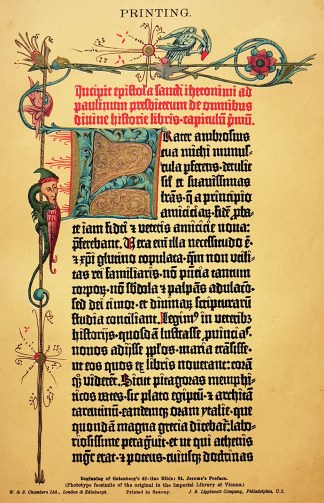 PRINTING.
Incipit epistola sancti iheronimi ad
paulinum presbiterum de omnibus
divine historie libris·capitulū pmū.
Frater ambrosius
tua michi munus-
cula pferens·detulit
sil' et suavissimas
lrās·q̄ a principio
amiciciaꝝ·fidē pba-
te iam fidei et veteris amicicie nova:
pferebant. Vera enī illa necessitudo ē·
et xpī glutino copulata·qm̄ non utili-
tas rei familiaris·nō pn̄cia tantum
corporꝝ·nō sbdola et palpans adulacō·
sed dei timor·et divinaꝝ scripturarū
studia conciliant. Legim⁹ in veterib⁹
historijs·quosdā lustrasse puincias·
novos adijsse pplos·maria transisse·
ut eos quos ex libris noverant: corā
qꝫ viderent. Sicut pitagoras memphi-
ticos vates·sic plato egiptū·et architā
tarentinū·eandemqꝫ oram ytalie·que
quondā magna grecia dicebat̄: labo-
riosissime peragvit·et ut qui athenis
mgr̄ erat·et potens·cuiusqꝫ doctrinas
Beginning of Gutenberg's 42-line Bible: St. Jerome's Preface.
(Phototype facsimile of the original in the Imperial Library at Vienna.)
W. & R. Chambers Ltd., London & Edinburgh. Printed in Saxony. J. B. Lippincott Company, Philadelphia, U. S.